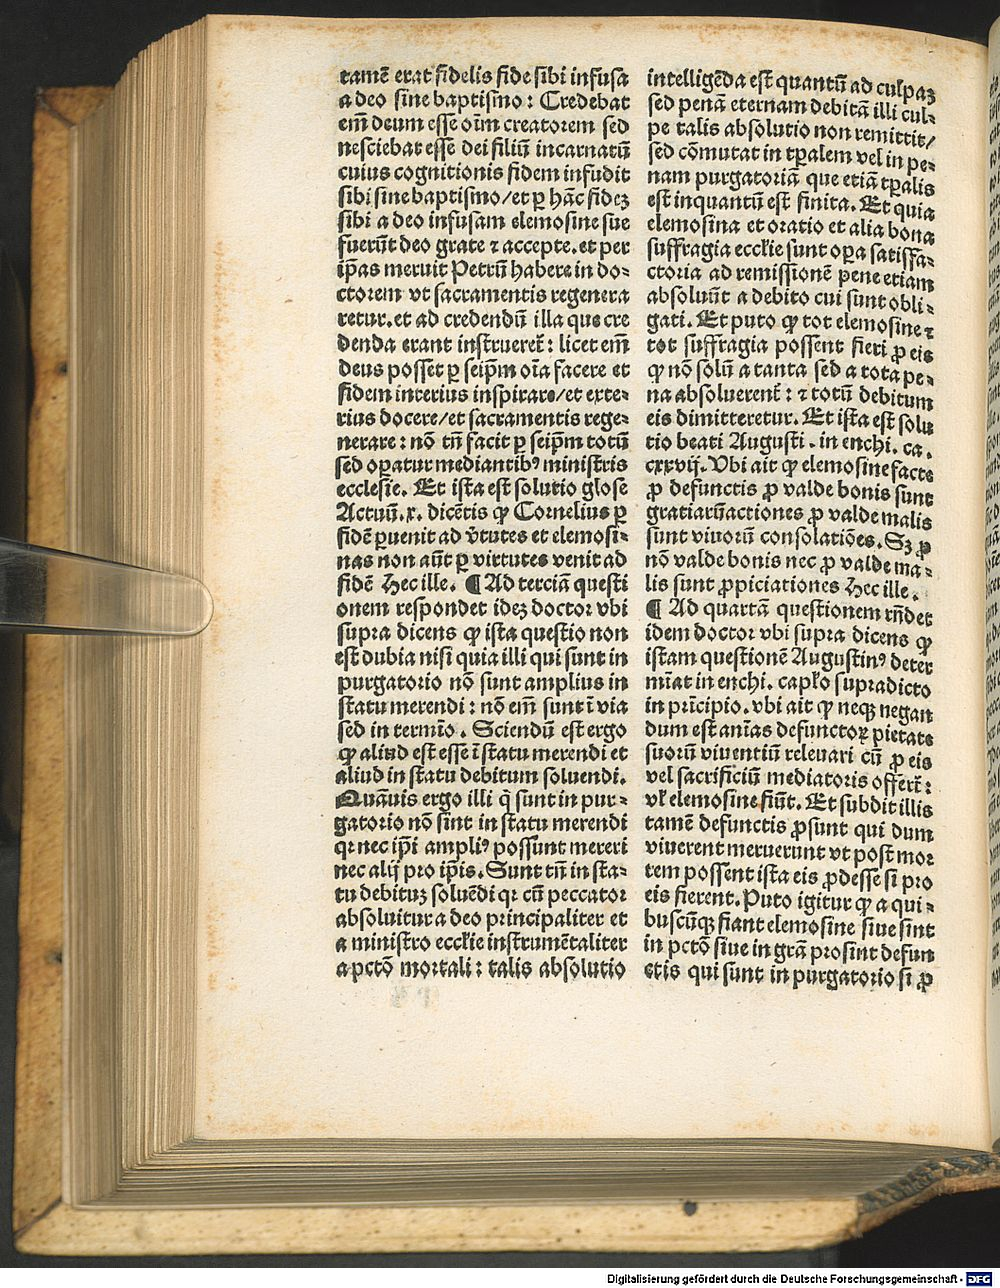 tamē erat fidelis fide sibi infusa
a deo sine baptismo: Credebat
em̄ deum esse oīm creatorem sed
nesciebat esse dei filiū incarnatū
cuius cognitionis fidem infudit
sibi sine baptismo/et ꝑ hāc fideꝫ
sibi a deo infusam elemosine sue
fuerūt deo grate ⁊ accepte. et per
ip̄as meruit Petrū habere in do⸗
ctorem vt sacramentis regenera
retur. et ad credendū illa que cre
denda erant instrueret᷑: licet em̄
deus posset ꝑ seip̄m oīa facere et
fidem interius inspirare/et exte⸗
rius docere/et sacramentis rege⸗
nerare: nō tn̄ facit ꝑ seip̄m totū
sed oꝑatur mediantibꝰ ministris
ecclesie. Et ista est solutio glose
Actuū.x. dicētis ꝙ Cornelius ꝑ
fidē ꝑuenit ad v̄tutes et elemosi⸗
nas non aūt ꝑ virtutes venit ad
fidē Hec ille. ¶ Ad terciā questi
onem respondet ideꝫ doctor vbi
supra dicens ꝙ ista questio non
est dubia nisi quia illi qui sunt in
purgatorio nō sunt amplius in
statu merendi: nō em̄ sunt ī via
sed in termīo. Sciendū est ergo
ꝙ aliud est esse ī statu merendi et
aliud in statu debitum soluendi.
Quāuis ergo illi q̄ sunt in pur⸗
gatorio nō sint in statu merendi
qꝛ nec ip̄i ampliꝰ possunt mereri
nec alij pro ip̄is. Sunt tn̄ in sta⸗
tu debituꝫ soluēdi qꝛ cū peccator
absoluitur a deo principaliter et
a ministro eccl̄ie instrumētaliter
a pctō mortali: talis absolutio
intelligēda est quantū ad culpaꝫ
sed penā eternam debitā illi cul⸗
pe talis absolutio non remittit/
sed cōmutat in tꝑalem vel in pe⸗
nam purgatoriā que etiā tꝑalis
est inquantū est finita. Et quia
elemosina et oratio et alia bona
suffragia eccl̄ie sunt oꝑa satisfa⸗
ctoria ad remissionē pene etiam
absoluūt a debito cui sunt obli⸗
gati. Et puto ꝙ tot elemosine ⁊
tot suffragia possent fieri ꝓ eis
ꝙ nō solū a tanta sed a tota pe⸗
na absoluerent᷑: ⁊ totū debitum
eis dimitteretur. Et ista est solu
tio beati Augusti. in enchi. ca.
cxxvij. Vbi ait ꝙ elemosine facte
ꝓ defunctis ꝓ valde bonis sunt
gratiarū actiones ꝓ valde malis
sunt viuorū consolatiōes. Sꝫ ꝓ
nō valde bonis nec ꝓ valde ma⸗
lis sunt ꝓpiciationes Hec ille.
¶ Ad quartā questionem rn̄det
idem doctor vbi supra dicens ꝙ
istam questionē Augustinꝰ deter
mīat in enchi. capl̄o supradicto
in prīcipio. vbi ait ꝙ neqꝫ negan
dum est aīas defunctoꝝ pietate
suorū viuentiū releuari cū ꝓ eis
vel sacrificiū mediatoris offert᷑:
vl̄ elemosine fiūt. Et subdit illis
tamē defunctis ꝓsunt qui dum
viuerent meruerunt vt post mor
tem possent ista eis ꝓdesse si pro
eis fierent. Puto igitur ꝙ a qui⸗
buscūqꝫ fiant elemosine siue sint
in pctō siue in grā prosint defun
ctis qui sunt in purgatorio si ꝓ
Digitalisierung gefördert durch die Deutsche Forschungsgemeinschaft - DFG